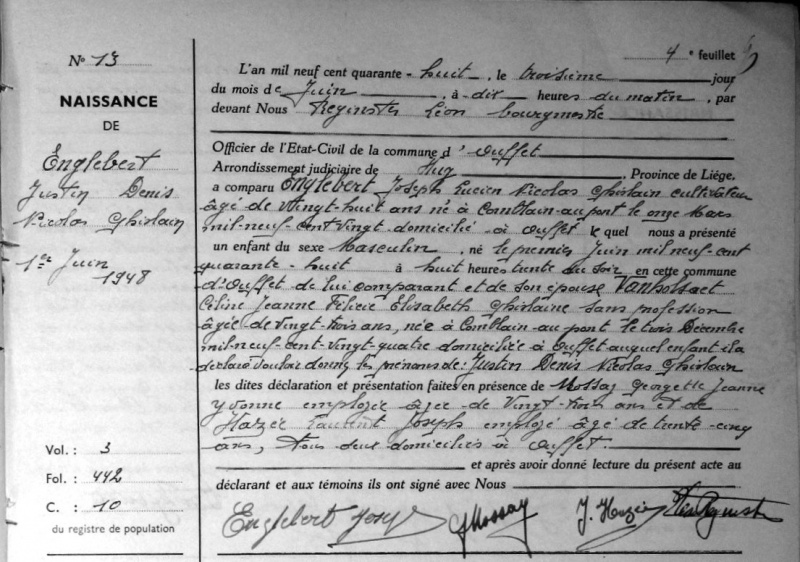 N° 13
NAISSANCE
DE
Englebert
Justin Denis
Nicolas Ghislain
1er Juin
1948
Vol. : 3
Fol. : 442
C. : 10
du registre de population
4 e feuillet
L'an mil neuf cent quarante-huit, le troisième jour
du mois de Juin, à dix heures du matin, par
devant Nous Reginster Léon bourgmestre
Officier de l'Etat-Civil de la commune d'Ouffet
Arrondissement judiciaire de Huy, Province de Liége,
a comparu Englebert Joseph Lucien Nicolas Ghislain cultivateur
âgé de vingt-huit ans né à Comblain-au-pont le onze Mars
mil-neuf-cent-vingt domicilié à Ouffet le quel nous a présenté
un enfant du sexe Masculin, né le premier Juin mil neuf-cent
quarante-huit à huit heures trente du soir en cette commune
d'Ouffet de lui comparant et de son épouse
Céline Jeanne Félicie Elisabeth Ghislaine sans profession
âgée de vingt-trois ans, née à Comblain-au-pont le trois Décembre
mil-neuf-cent-vingt-quatre domiciliée à Ouffet auquel enfant il a
déclaré vouloir donner les prénoms de : Justin Denis Nicolas Ghislain
les dites déclaration et présentation faites en présence de Mossay Georgette Jeanne
Yvonne employée âgée de vingt-trois ans et de
Laurent Joseph employé âgé de trente-cinq
ans, tous deux domiciliés à Ouffet.
et après avoir donné lecture du présent acte au
déclarant et aux témoins ils ont signé avec Nous
Englebert Jos GMossay J.